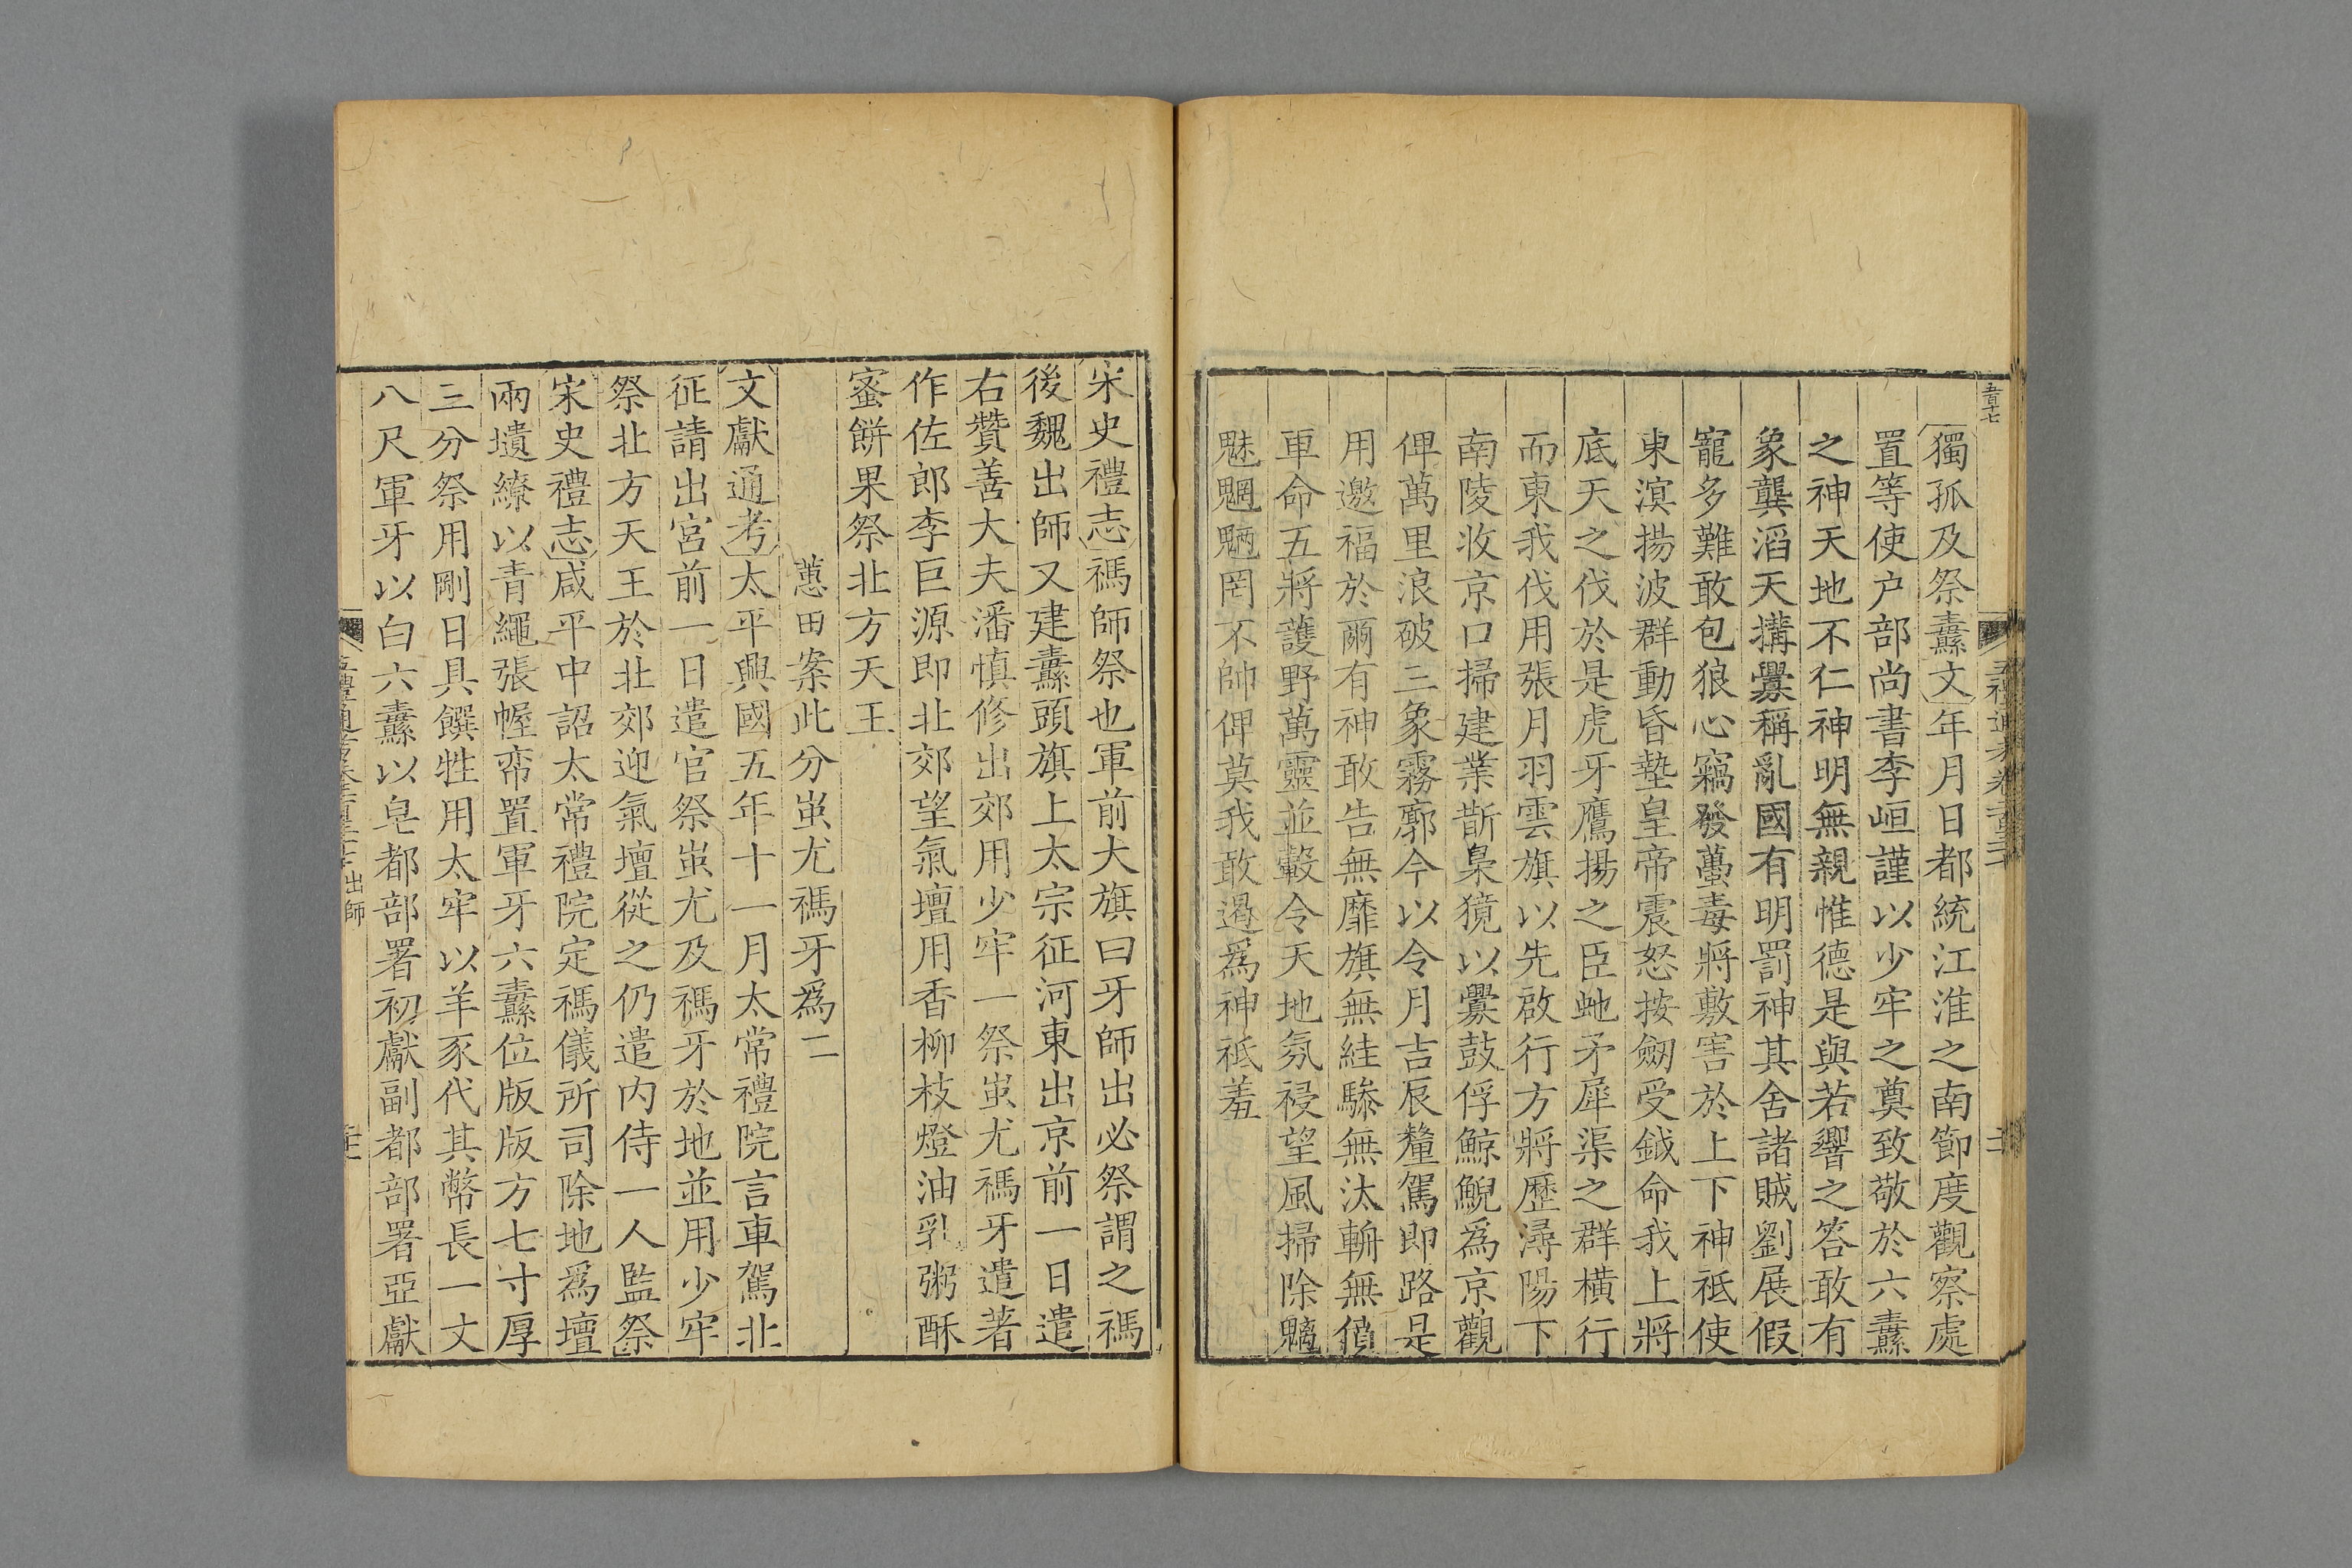 獨孤及祭纛文年月日都統江淮之南節度觀察處
置等使户部尚書李峘謹以少牢之奠致敬於六纛
之神天地不仁神明無親惟德是與若響之答敢有
象龔滔天搆釁稱亂國有明罰神其舍諸賊劉展假
寵多難敢包狼心竊發蠆毒將敷害於上下神祗使
東溟揚波群動昏墊皇帝震怒按劒受鉞命我上將
底天之伐於是虎牙鷹揚之臣虵矛犀渠之群橫行
而東我伐用張月羽雲旗以先啟行方將歷潯陽下
南陵收京口掃建業斮梟獍以釁鼓俘鯨鯢爲京觀
俾萬里浪破三象霧廓今以令月吉辰釐駕即路是
用邀福於爾有神敢告無靡旗無絓驂無汰輈無僨
車命五將護野萬靈並轂令天地氛祲望風掃除魑
魅魍魎罔不帥俾莫我敢遏爲神祗羞
宋史禮志禡師祭也軍前大旗曰牙師出必祭謂之禡
後魏出師又建纛頭旗上太宗征河東出京前一日遣
右贊善大夫潘慎修出郊用少牢一祭蚩尤禡牙遣著
作佐郎李巨源即北郊望氣壇用香柳枝燈油乳粥酥
蜜餅果祭北方天王
蕙田案此分蚩尤禡牙爲二
文獻通考太平興國五年十一月太常禮院言車駕北
征請出宮前一日遣官祭蚩尤及禡牙於地並用少牢
祭北方天王於北郊迎氣壇從之仍遣内侍一人監祭
宋史禮志咸平中詔太常禮院定禡儀所司除地爲壇
兩壝繚以青繩張幄帟置軍牙六纛位版版方七寸厚
三分祭用剛日具饌牲用太牢以羊豕代其幣長一丈
八尺軍牙以白六纛以皂都部署初獻副都部署亞獻
出師